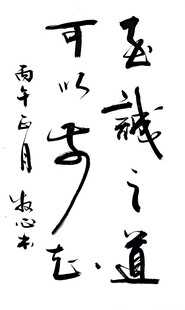 至誠之道
可以前知
丙午正月 牧心書